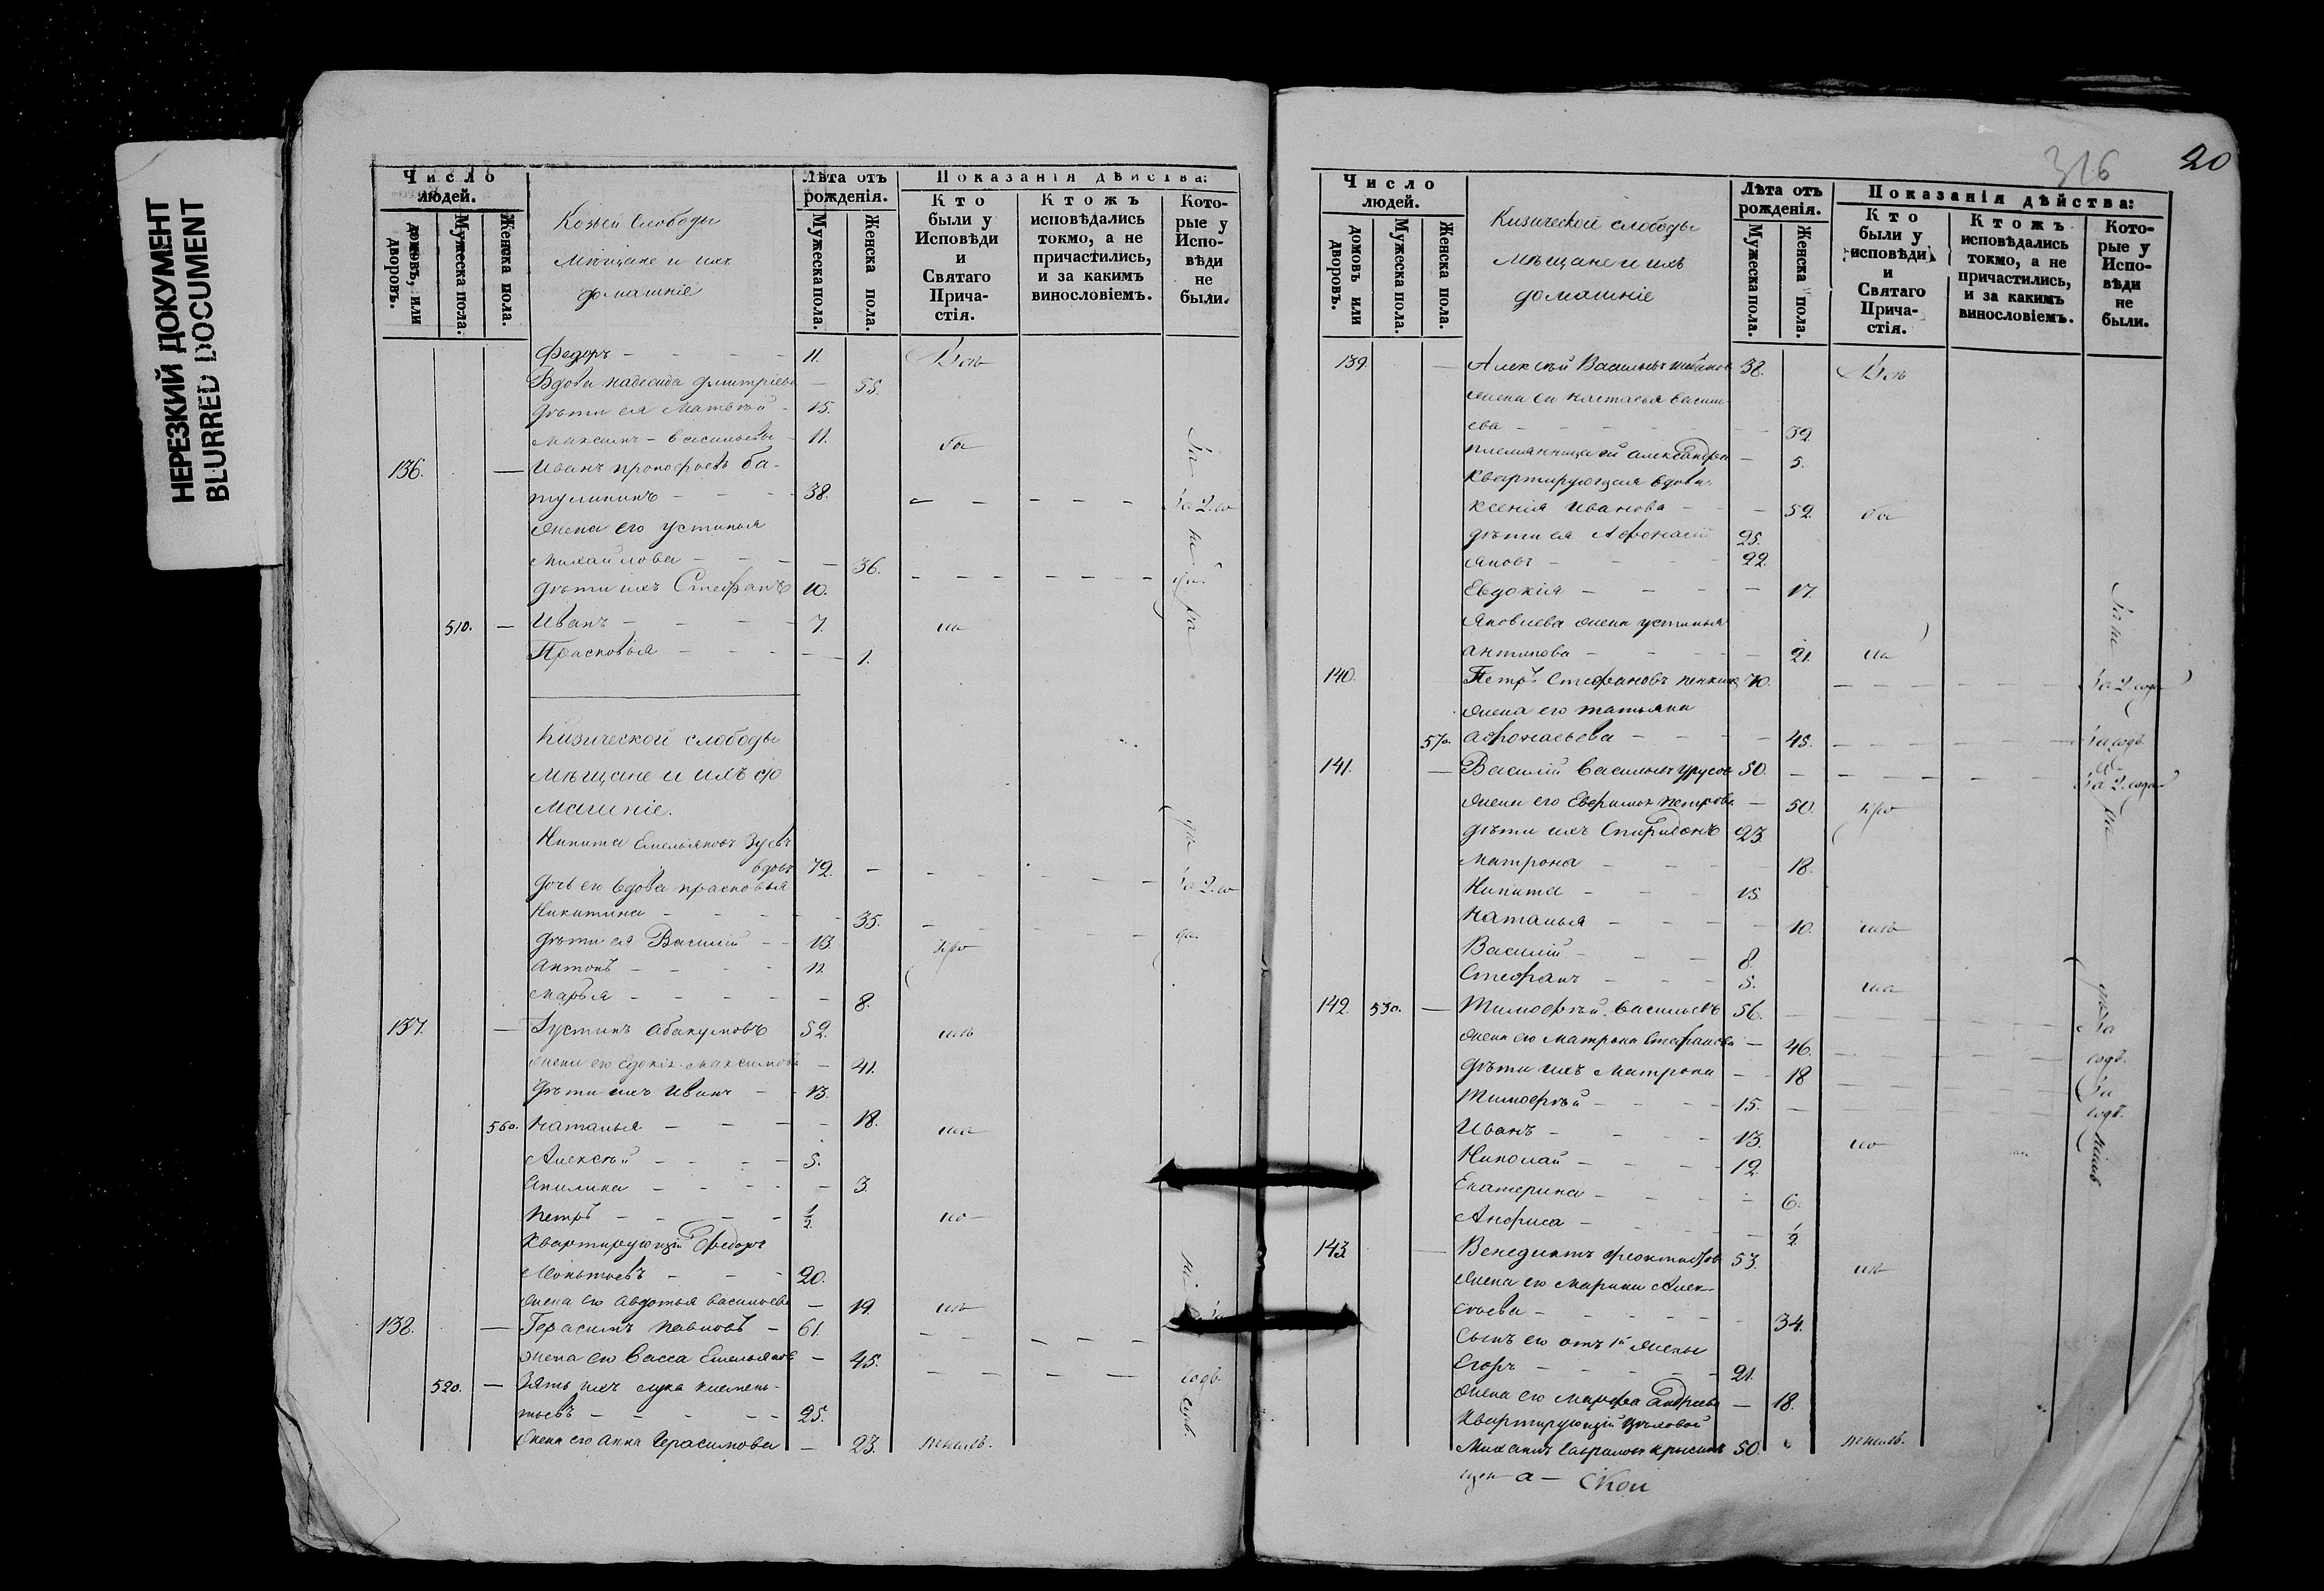 НЕРЕЗКИЙ ДОКУМЕНТ
BLURRED DOCUMENT
Число людей.
домовъ, или дворовъ.
Мужеска пола.
Женска пола.
Козьей Слободы
Мѣщане и ихъ
домашніе
Лѣта отъ рожденія.
Мужеска пола.
Женска пола.
Показанія дѣйства:
Кто были у Исповѣди и Святаго Причастія.
Ктожъ исповѣдались токмо, а не причастились, и за какимъ винословіемъ.
Которые у Исповѣди не были.
Федоръ - - - 11.
Вдова надежда дмитріева - 55.
дѣти ея Матвѣй - 15.
Максимъ - васильевы - 11.
136. — Иванъ прокофьевъ ба-
тулинъ - - - 38. За 2. го
жена его устинья
михайлова - - - 36.
дѣти ихъ Стефанъ 10.
510. — Иванъ - - - 7.
Прасковья - - - 1.
Кизической слободы
Мѣщане и ихъ до
машніе.
Никита Емельяновъ
вдовъ 72. - - - За 2. го
дочь его вдова прасковья
Никитина - - - 35. - - - да.
дѣти ея Василій - - 13.
Антонъ - - - 11.
марья - - - 8.
137. — Густинъ Абакумовъ 52.
жена его Евдокія максимова - 41.
дѣти ихъ Иванъ - 13.
560. Наталья - - - 18.
Алексѣй - - - 5.
Акилина - - - 3.
Петръ - - - 1/2.
Квартирующій Федоръ
- - - 20.
жена его авдотья васильева - 19.
138. — Герасимъ павловъ - 61.
жена его васса Емельянов - 45. - - - годъ.
520. — Зять ихъ лука климен-
тьевъ - - - 25.
жена его анна Герасимова - 23.
316
20
Число людей.
домовъ или дворовъ.
Мужеска пола.
Женска пола.
Кизической слободы
Мѣщане и ихъ
домашніе
Лѣта отъ рожденія.
Мужеска пола.
Женска пола.
Показанія дѣйства:
Кто были у исповѣди и Святаго Причастія.
Ктожъ исповѣдались токмо, а не причастились, и за какимъ винословіемъ.
Которые у Исповѣди не были.
139. — Алексѣй Васильевъ 38.
жена его настасья васили-
ева - - - 39.
племянница ей александра - 5.
Квартирующая вдова
ксенія Иванова - - 52.
дѣти ея Афонасій 25.
Яковъ - - - 22.
Евдокія - - - 17.
Яковлева жена устинья
антипова - - - 21.
140. Петръ Стефановъ 70. - - - За 2. года
жена его татьяна
570. афонасьева - - - 45. - - - За годъ.
141. — Василій васильевъ урусов 50. - - - За 2. года
жена его Евфимья петрова - 50.
дѣти ихъ Спиридонъ 23.
матрона - - - 18.
Никита - - - 15.
Наталья - - - 10.
Василій - - - 8.
Стефанъ - - - 5.
142. 530. — Тимофѣй васильевъ 56. - - - За
жена его матрона Стефанова - 46. - - - годъ.
дѣти ихъ матрона - - 18 - - - За
Тимофѣй - - - 15. - - - годъ.
Иванъ - - - 13.
Николай - - - 12.
Екатерина - - - 6.
Анфиса - - - 1/2
143 — Венедиктъ феоктистов 53.
жена его марина Алек-
сѣева - - - 34.
сынъ его отъ 1й жены
Егоръ - - - 21.
жена его марфа андреева - 18.
Квартирующій цѣховой
Михаилъ 50.